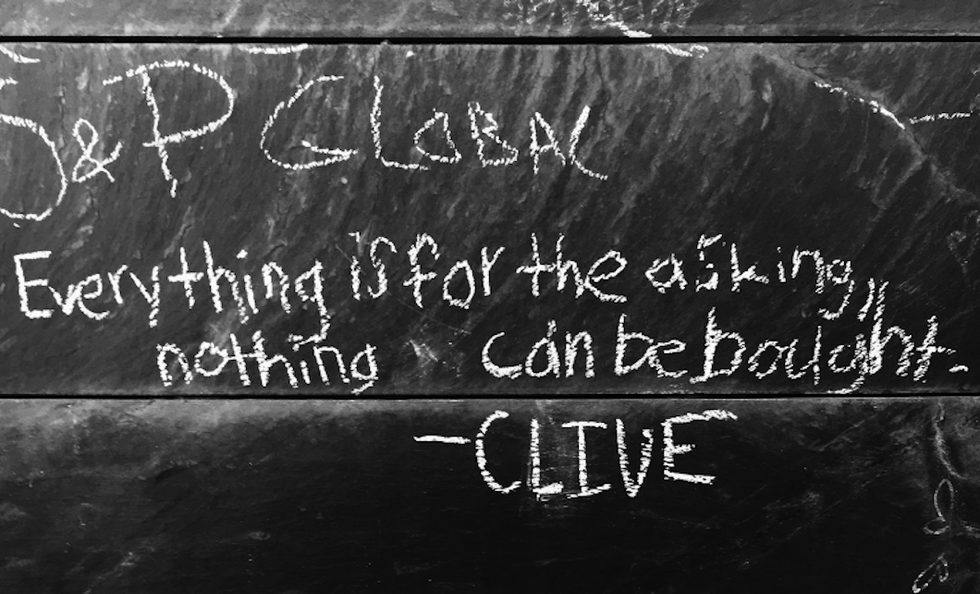 S&P GLOBAL
Everything is for the asking,
nothing can be bought.
-CLIVE